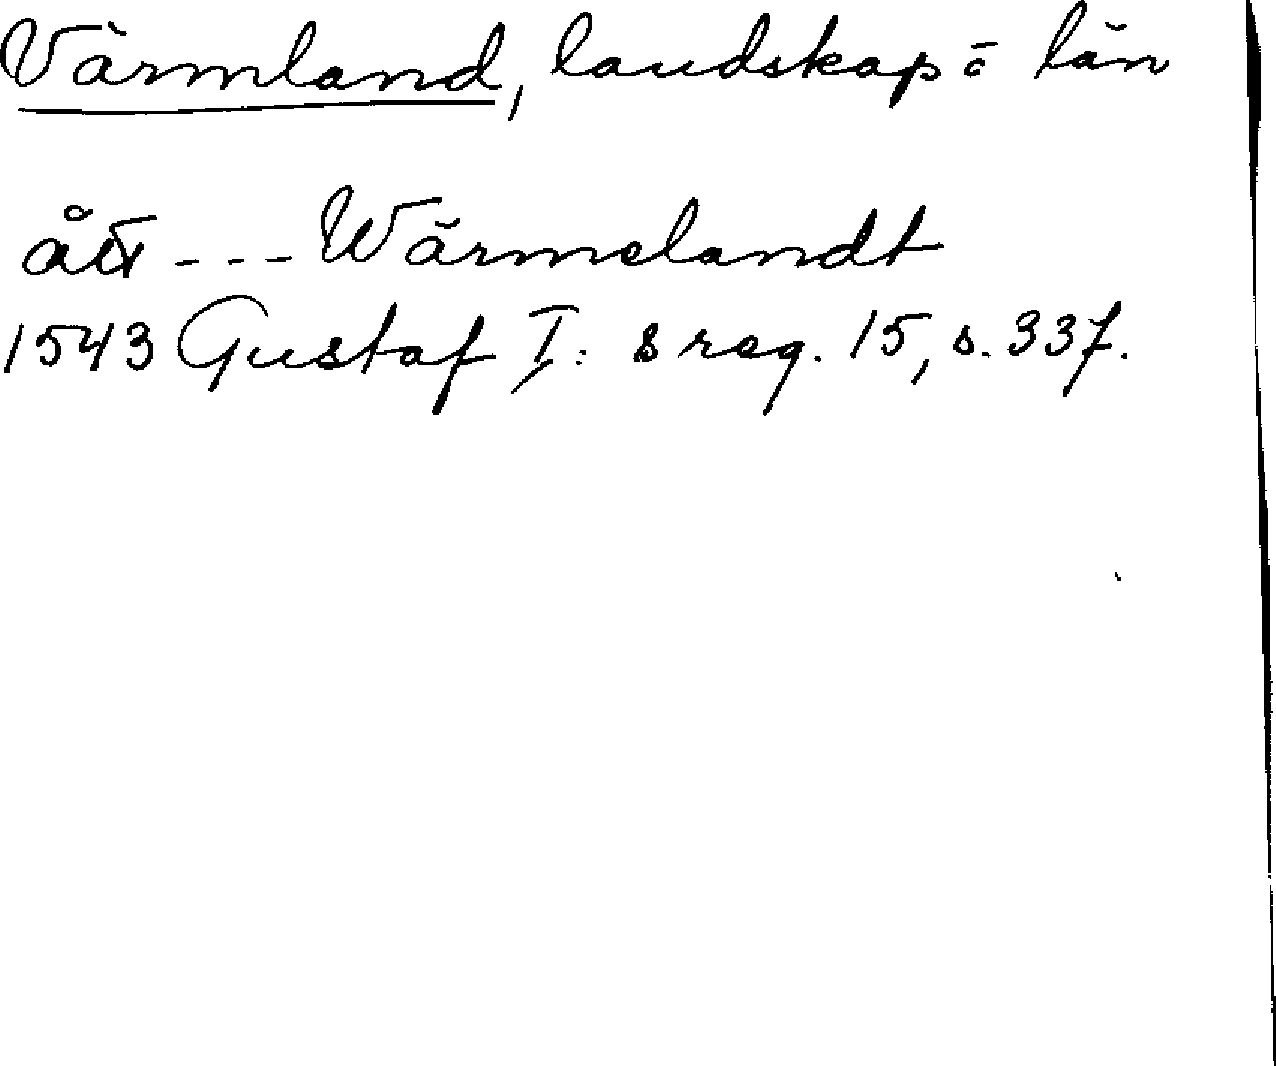 Värmland, landskap o län
åt --- Wärmelandt
1543 Gustaf I:s reg. 15, s. 337.